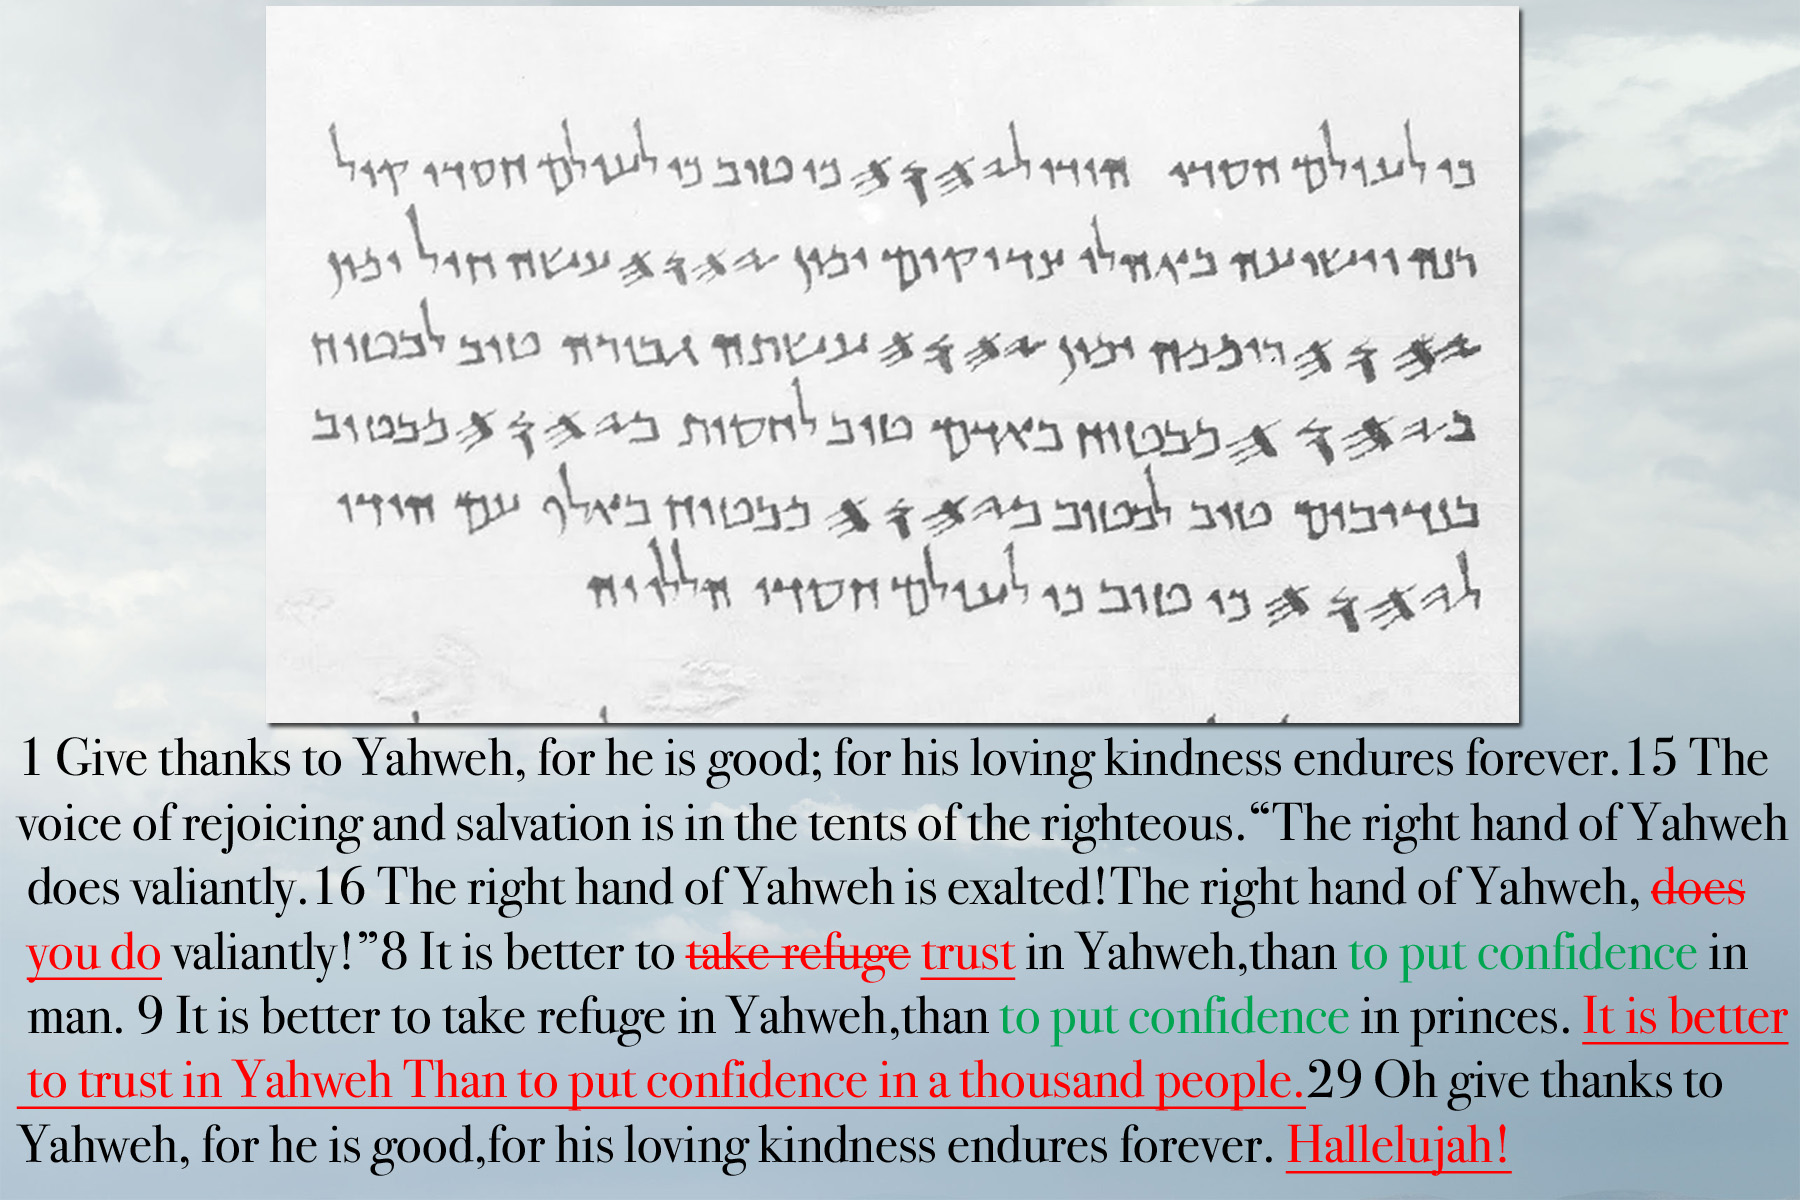 כי לעולם חסדו הודו ל𐤉𐤄𐤅𐤄 כי טוב כי לעולם חסדו קול
רנה וישועה באהלי צדיקים ימין 𐤉𐤄𐤅𐤄 עשה חיל ימין
𐤉𐤄𐤅𐤄 רוממה ימין 𐤉𐤄𐤅𐤄 עשתה גבורה טוב לבטוח
ב𐤉𐤄𐤅𐤄 מבטוח באדם טוב לחסות ב𐤉𐤄𐤅𐤄 מבטוב
בנדיבים טוב לבטוב ב𐤉𐤄𐤅𐤄 מבטוח באלף עם הודו
ל𐤉𐤄𐤅𐤄 כי טוב כי לעולם חסדו הללויה
1 Give thanks to Yahweh, for he is good; for his loving kindness endures forever.15 The
voice of rejoicing and salvation is in the tents of the righteous.“The right hand of Yahweh
does valiantly.16 The right hand of Yahweh is exalted!The right hand of Yahweh, does
you do valiantly!”8 It is better to take refuge trust in Yahweh,than to put confidence in
man. 9 It is better to take refuge in Yahweh,than to put confidence in princes. It is better
to trust in Yahweh Than to put confidence in a thousand people.29 Oh give thanks to
Yahweh, for he is good,for his loving kindness endures forever. Hallelujah!